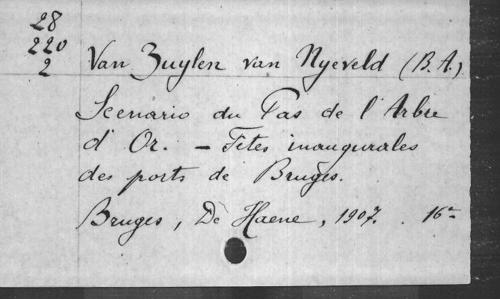 28
220
2
Van Zuylen van Nyeveld (B.A.)
Scenario du Pas de l'Arbre
d'Or. – Fêtes inaugurales
des ports de Bruges.
Bruges, De Haene, 1907. 16º